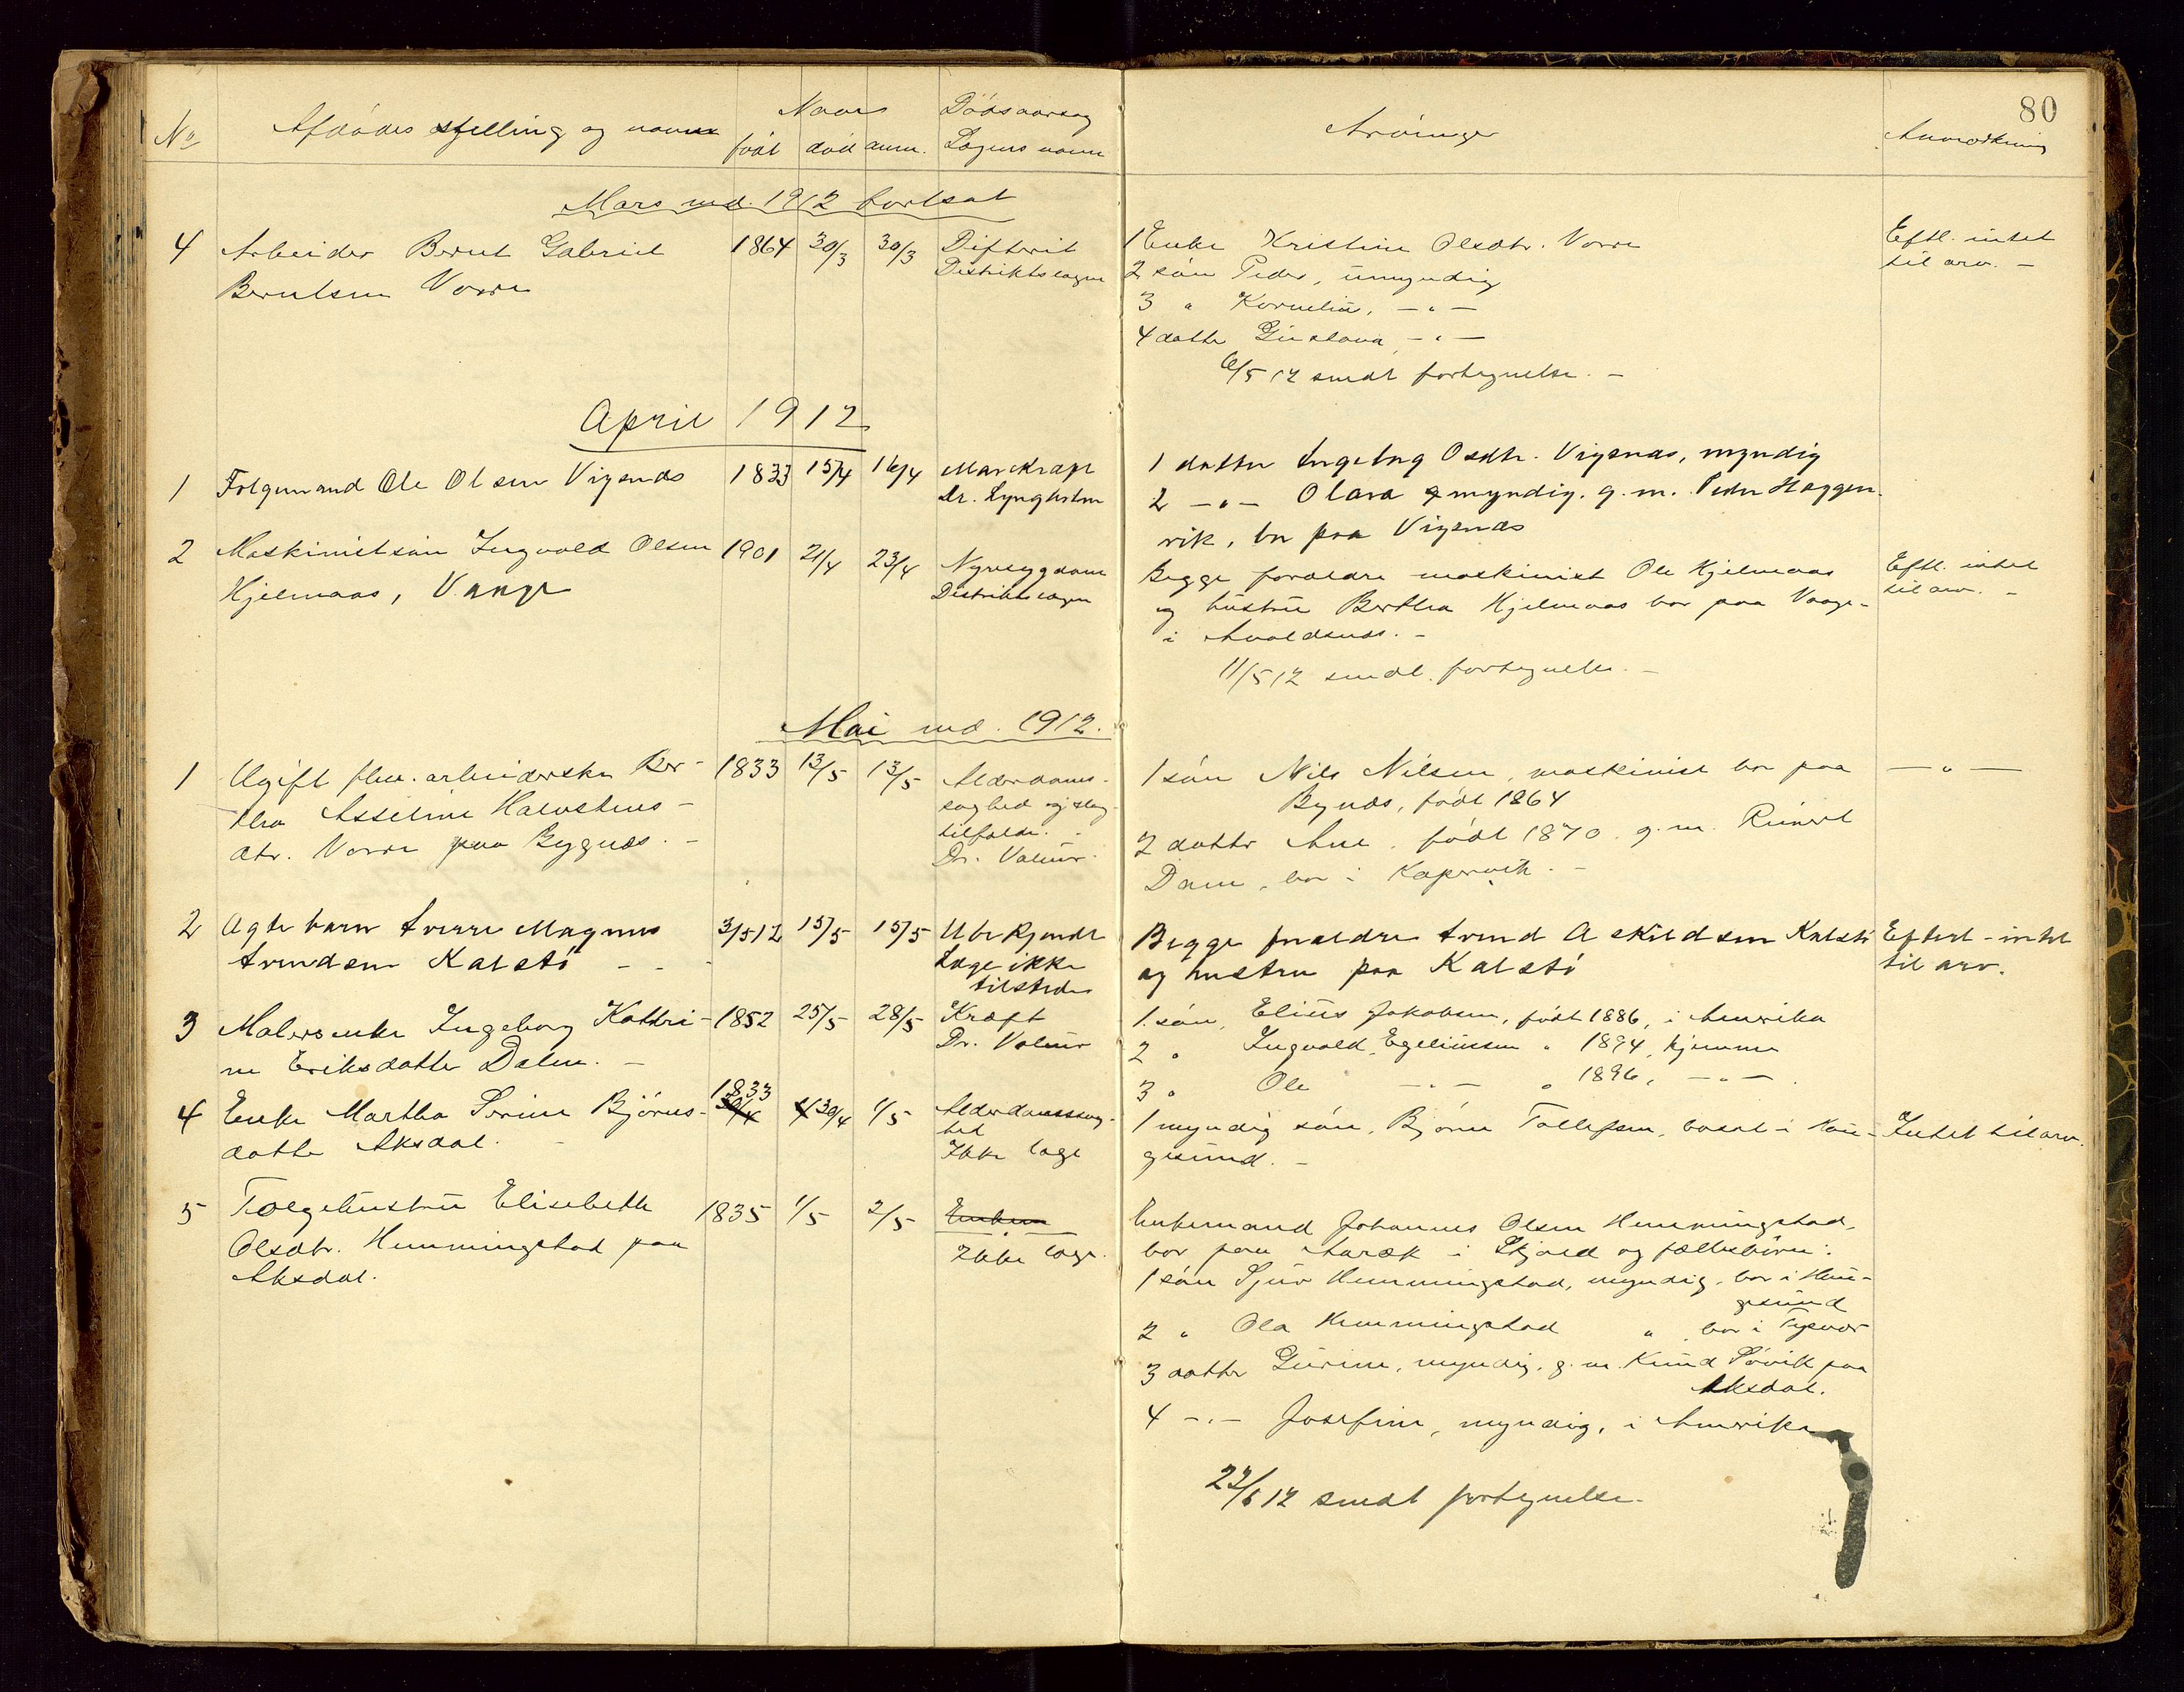 80
No Afdødes stilling og navn Naar Dødsaarsag
født død anm. Lægens navn
Arvinger Anmerkning
Mars md. 1912 fortsat
4 Arbeider Bernt Gabriel 1864 30/3 30/3 Difterit
Berntsen Vorre Distriktslægen
1 Enke Kristine Olsdtr. Vorre Eftl. intet
2 søn Peder, umyndig til arv. -
3 " Kornelius, - " -
4 datter Gustava, - " -
6/5 12 sendt fortegnelse. -
April 1912
1 Folgemand Ole Olsen Vigsnæs 1833 15/4 16/4 Mavekræft
Dr. Lyngholm
1 datter Ingeborg Osdtr. Vigsnæs, myndig
2 - " - Olava myndig. g. m. Peder Haggen-
vik, bor paa Vigsnæs
2 Maskinistsøn Ingvald Olsen 1901 21/4 23/4 Nyresygdom
Hjelmaas, Vaage Distriktslægen
Begge forældre maskinist Ole Hjelmaas Eftl. intet
og hustru Bertha Hjelmaas bor paa Vaage til arv. -
i Avaldsnes. -
11/5 12 sendt fortegnelse. -
Mai md. 1912.
1 Ugift fhv. arbeiderske Ber- 1833 13/5 13/5 Alderdoms-
tha Asseline Halvstens- svaghed og slag-
dtr. Vorre paa Bygnes. - tilfælde. -
Dr. Valeur.
1 søn Nils Nilsen, maskinist bor paa - " -
Bynes, født 1864
2 datter Ane, født 1870. g. m. Rinert
Dam, bor i Kopervik. -
2 Ægte barn Sverre Magnus 3/5 12 15/5 15/5 Ubekjendt
Svendsen Kalstø - - Læge ikke
tilstede
Begge forældre Svend Askildsen Kalstø Efterl- intet
og hustru paa Kalstø til arv.
3 Malersenke Ingeborg Kathri- 1852 25/5 28/5 Kræft
ne Eriksdatter Dalen. - Dr. Valeur
1. søn, Elius Jakobsen, født 1886, i Amerika
2 " Ingvald Egeliussen " 1894, hjemme
3 " Ole - " - " 1896, - " -
4 Enke Martha Serine Bjørns- 1833 30/4 1/5 Alderdomssvag-
datter Aksdal. - hed
Ikke læge
1 myndig søn, Bjørne Tollefsen, bosat i Hau- Intet til arv.
gesund. -
5 Følgehustru Elisebeth 1835 1/5 2/5 Enkem
Olsdtr. Hemmingstad paa Ikke læge.
Aksdal.
Enkemand Johannes Olsen Hemmingstad,
bor paa i Skjold og fællesbørn:
1 søn Sjur Hemmingstad, myndig, bor i Hau-
gesund
2 " Ola Hemmingstad " bor i Tysvær
3 datter Gurine, myndig, g. m. Knud Søvik paa
Aksdal.
4 - " - Josefine, myndig, i Amerika
22/6 12 sendt fortegnelse.